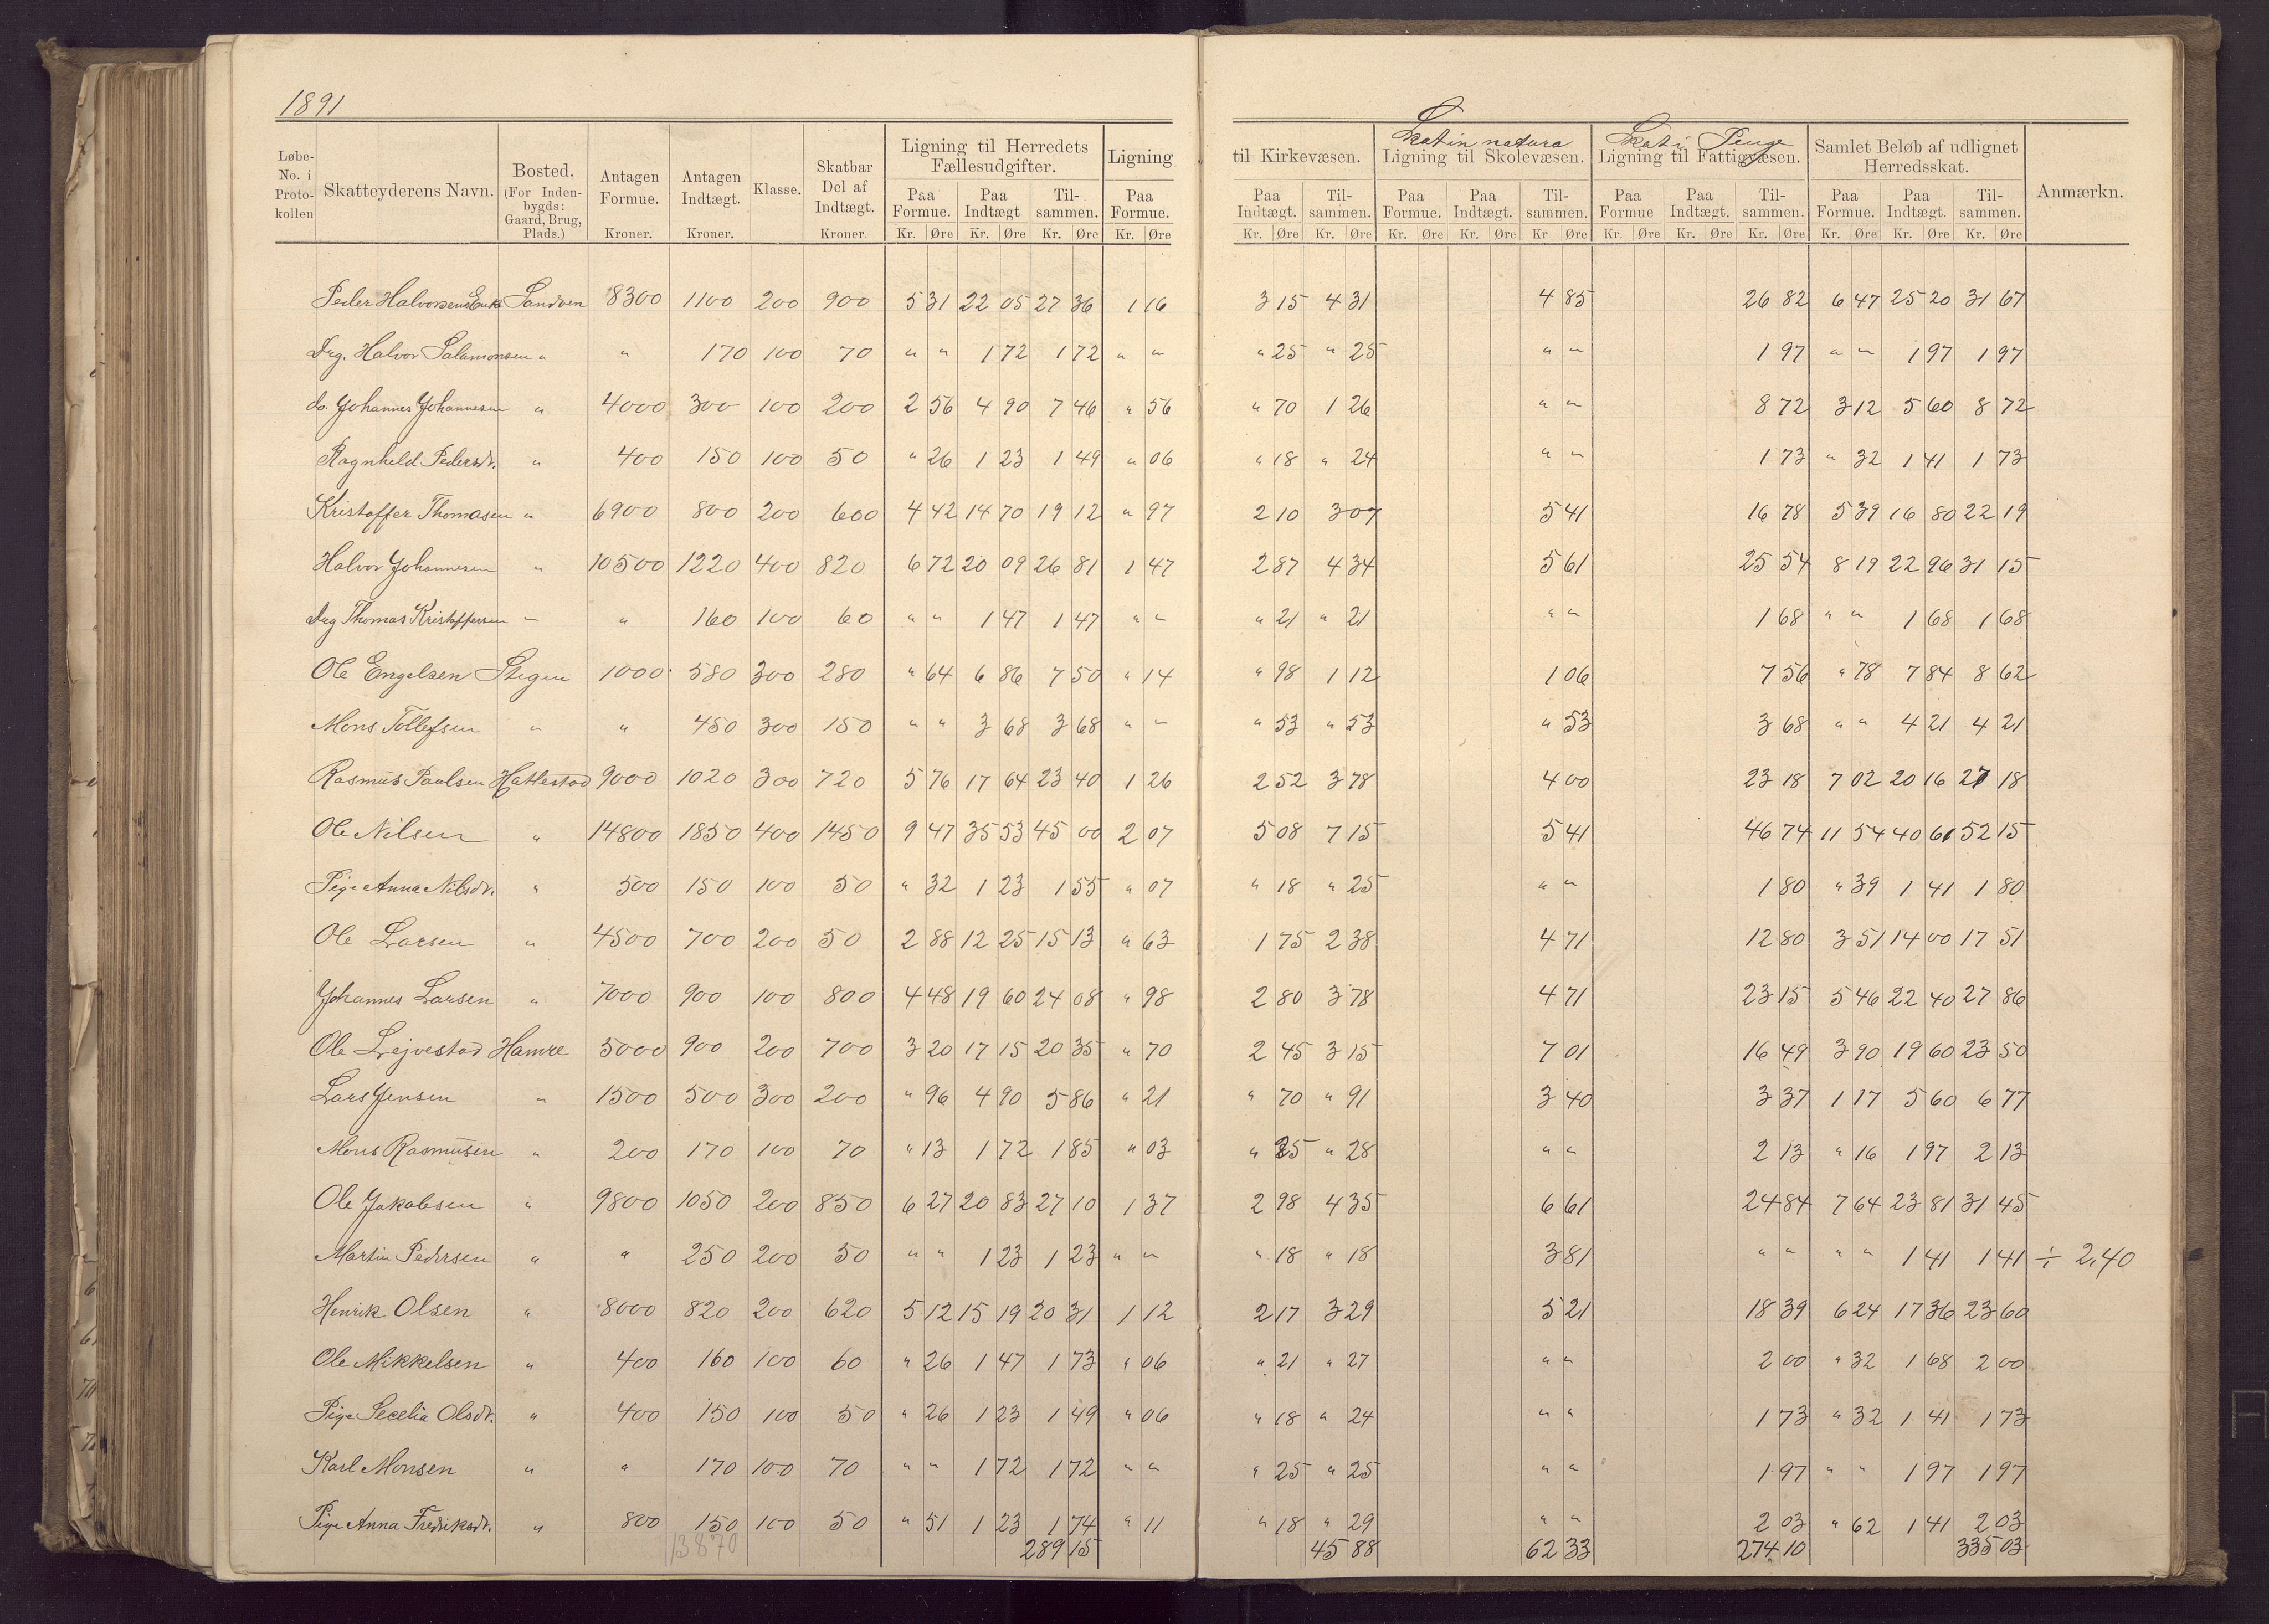 1891
Løbe-No. i Proto-kollen | Skatteyderens Navn. | Bosted. (For Inden-bygds: Gaard, Brug, Plads.) | Antagen Formue. Kroner. | Antagen Indtægt. Kroner. | Klasse. | Skatbar Del af Indtægt. Kroner. | Ligning til Herredets Fællesudgifter. Paa Formue. Kr. Øre Paa Indtægt Kr. Øre Til-sammen. Kr. Øre | Ligning Paa Formue. Kr. Øre | til Kirkevæsen. Paa Indtægt. Kr. Øre Til-sammen. Kr. Øre | Skat in natura Ligning til Skolevæsen. Paa Formue. Kr. Øre Paa Indtægt. Kr. Øre Til-sammen. Kr Øre | Skat i Penge Ligning til Fattigvæsen. Paa Formue Kr. Øre Paa Indtægt. Kr. Øre Til-sammen. Kr. Øre | Samlet Beløb af udlignet Herredsskat. Paa Formue. Kr. Øre Paa Indtægt. Kr. Øre Til-sammen. Kr. Øre | Anmærkn.
Peder Halvorsens Enke Sandven 8300 1100 200 900 5 31 22 05 27 36 1 16 3 15 4 31 4 85 26 82 6 47 25 20 31 67
Drg. Halvor Salamonsen " " 170 100 70 " " 1 72 1 72 " " " 25 " 25 " " 1 97 " " 1 97 1 97
do. Johannes Johannesen " 4000 300 100 200 2 56 4 90 7 46 " 56 " 70 1 26 " " 8 72 3 12 5 60 8 72
Ragnheld Pedersdr. " 400 150 100 50 " 26 1 23 1 49 " 06 " 18 " 24 " " 1 73 " 32 1 41 1 73
Kristoffer Thomasen " 6900 800 200 600 4 42 14 70 19 12 " 97 2 10 3 07 5 41 16 78 5 39 16 80 22 19
Halvor Johannesen " 10500 1220 400 820 6 72 20 09 26 81 1 47 2 87 4 34 5 61 25 54 8 19 22 96 31 15
Drg Thomas Kristoffersen " " 160 100 60 " " 1 47 1 47 " " " 21 " 21 " " 1 68 " " 1 68 1 68
Ole Engelsen Stegen 1000 580 300 280 " 64 6 86 7 50 " 14 " 98 1 12 1 06 7 56 " 78 7 84 8 62
Mons Tollefsen " " 450 300 150 " " 3 68 3 68 " " " 53 " 53 " 53 3 68 " " 4 21 4 21
Rasmus Paulsen Hattestad 9000 1020 300 720 5 76 17 64 23 40 1 26 2 52 3 78 4 00 23 18 7 02 20 16 27 18
Ole Nilsen " 14800 1850 400 1450 9 47 35 53 45 00 2 07 5 08 7 15 5 41 46 74 11 54 40 61 52 15
Pige Anna Nilsdr. " 500 150 100 50 " 32 1 23 1 55 " 07 " 18 " 25 " " 1 80 " 39 1 41 1 80
Ole Larsen " 4500 700 200 50 2 88 12 25 15 13 " 63 1 75 2 38 4 71 12 80 3 51 14 00 17 51
Johannes Larsen " 7000 900 100 800 4 48 19 60 24 08 " 98 2 80 3 78 4 71 23 15 5 46 22 40 27 86
Ole Lejvestad Hamre 5000 900 200 700 3 20 17 15 20 35 " 70 2 45 3 15 7 01 16 49 3 90 19 60 23 50
Lars Jensen " 1500 500 300 200 " 96 4 90 5 86 " 21 " 70 " 91 3 40 3 37 1 17 5 60 6 77
Mons Rasmusen " 200 170 100 70 " 13 1 72 1 85 " 03 " 25 " 28 " " 2 13 " 16 1 97 2 13
Ole Jakobsen " 9800 1050 200 850 6 27 20 83 27 10 1 37 2 98 4 35 6 61 24 84 7 64 23 81 31 45
Martin Pedersen " " 250 200 50 " " 1 23 1 23 " " " 18 " 18 3 81 " " " " 1 41 1 41 ÷ 2,40
Henrik Olsen " 8000 820 200 620 5 12 15 19 20 31 1 12 2 17 3 29 5 21 18 39 6 24 17 36 23 60
Ole Mikkelsen " 400 160 100 60 " 26 1 47 1 73 " 06 " 21 " 27 " " 2 00 " 32 1 68 2 00
Pige Secelia Olsdr. " 400 150 100 50 " 26 1 23 1 49 " 06 " 18 " 24 " " 1 73 " 32 1 41 1 73
Karl Monsen " " 170 100 70 " " 1 72 1 72 " " " 25 " 25 " " 1 97 " " 1 97 1 97
Pige Anna Fredriksdr. " 800 150 100 50 " 51 1 23 1 74 " 11 " 18 " 29 " " 2 03 " 62 1 41 2 03
13870 289 15 45 88 62 33 274 10 335 03